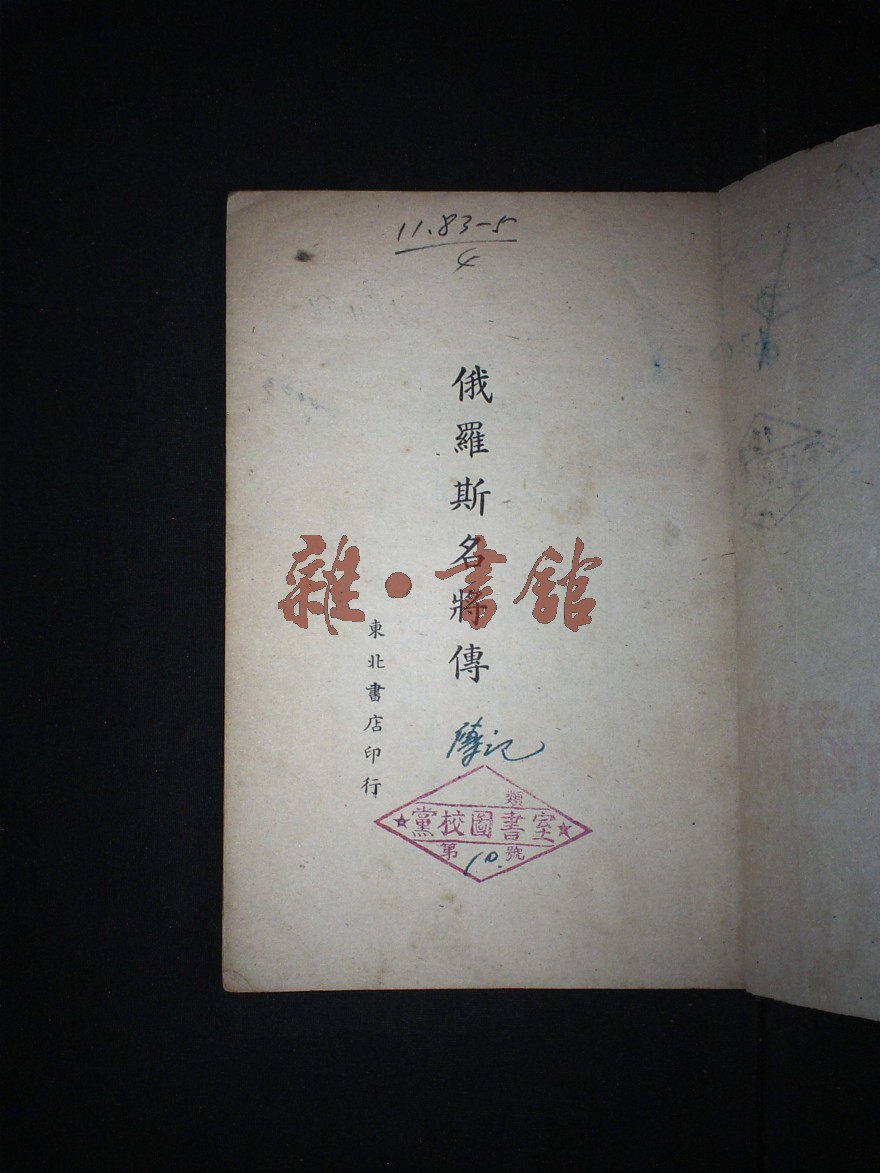 11.83-5
4
俄羅斯名將傳
東北書店印行
雜·書館
傳記
類
★黨校圖書室★
第10.號